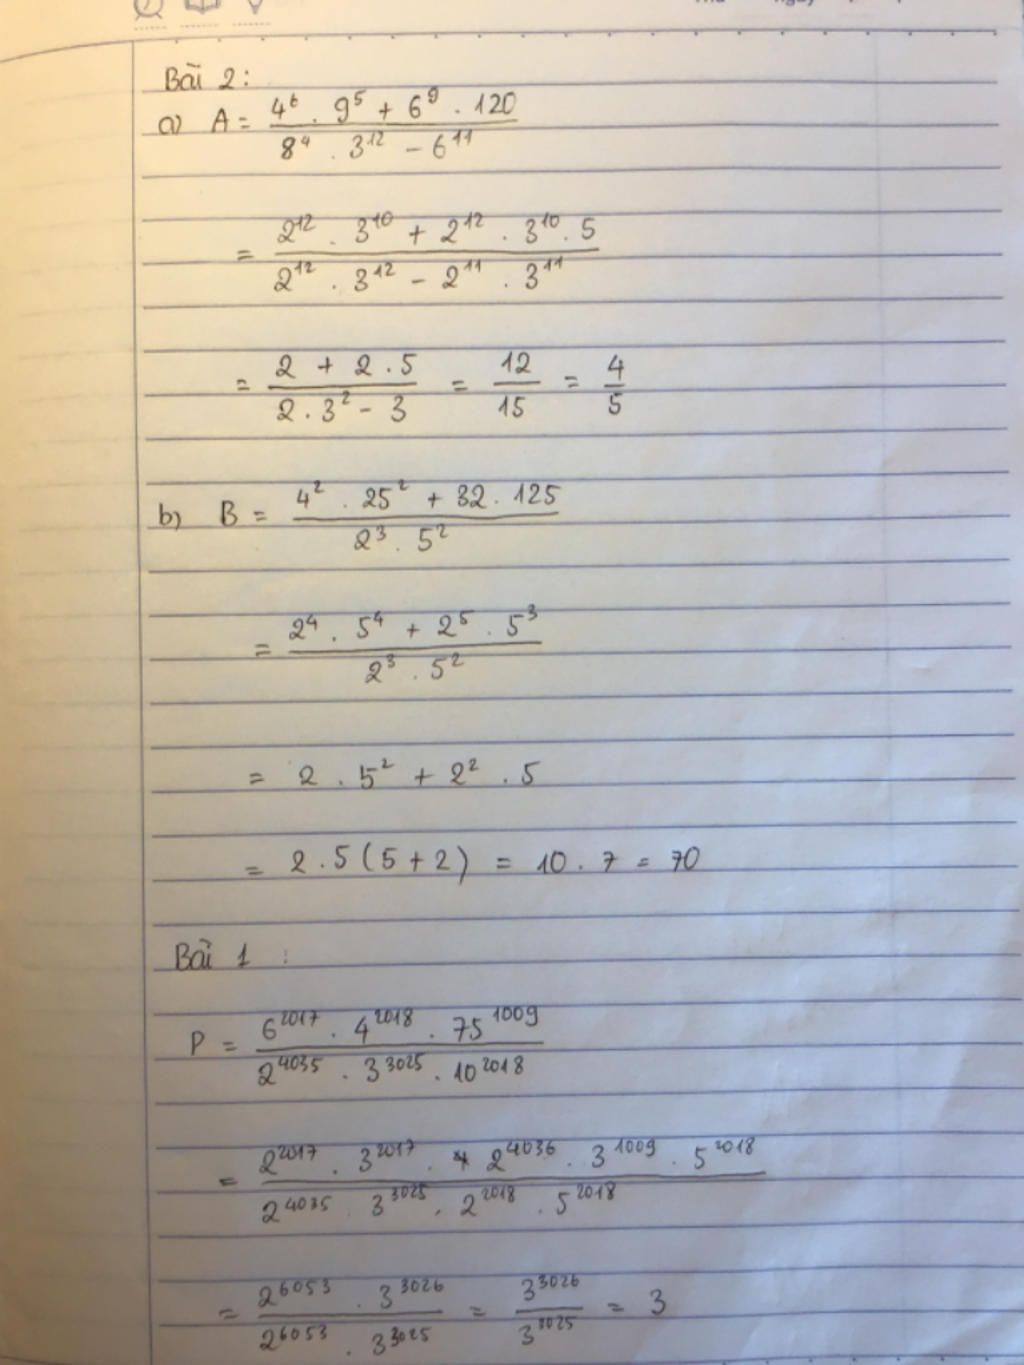 Bài 2:
a) A = (4^6 . 9^5 + 6^9 . 120) / (8^4 . 3^12 - 6^11)
= (2^12 . 3^10 + 2^12 . 3^10 . 5) / (2^12 . 3^12 - 2^11 . 3^11)
= (2 + 2 . 5) / (2 . 3^2 - 3) = 12/15 = 4/5
b) B = (4^2 . 25^2 + 32 . 125) / (2^3 . 5^2)
= (2^4 . 5^4 + 2^5 . 5^3) / (2^3 . 5^2)
= 2 . 5^2 + 2^2 . 5
= 2 . 5 (5 + 2) = 10 . 7 = 70
Bài 1 :
P = (6^2017 . 4^2018 . 75^1009) / (2^4035 . 3^3025 . 10^2018)
= (2^2017 . 3^2017 . 2^4036 . 3^1009 . 5^2018) / (2^4035 . 3^3025 . 2^2018 . 5^2018)
= (2^6053 . 3^3026) / (2^6053 . 3^3025) = 3^3026 / 3^3025 = 3